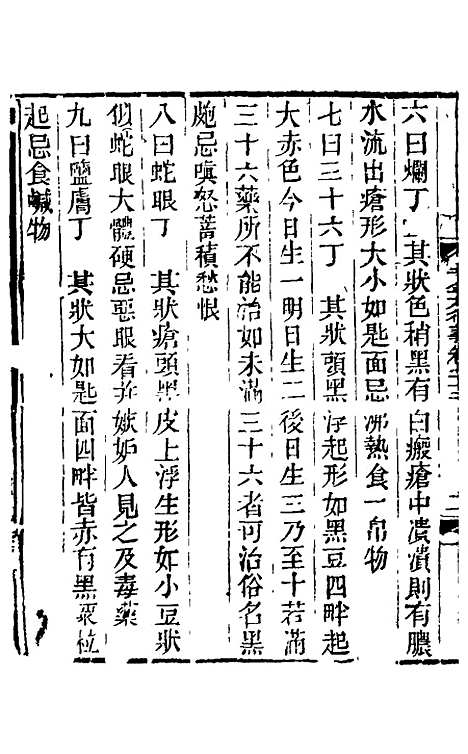 六曰爛丁　其狀色稍黑有白瘢瘡中潰潰則有膿
水流出瘡形大小如匙面忌沸熱食一帛物
七曰三十六丁　其狀頭黑浮起形如黑豆四畔起
大赤色今日生一明日生二後日生三乃至十若滿
三十六藥所不能治如未滿三十六者可治俗名黑
皰忌嗔怒蓄積愁恨
八曰蛇眼丁　其狀瘡頭黑皮上浮生形如小豆狀
似蛇眼大體硬忌惡眼看并嫉妒人見之及毒藥
九曰鹽膚丁　其狀大如匙面四畔皆赤有黑粟粒
起忌食鹹物